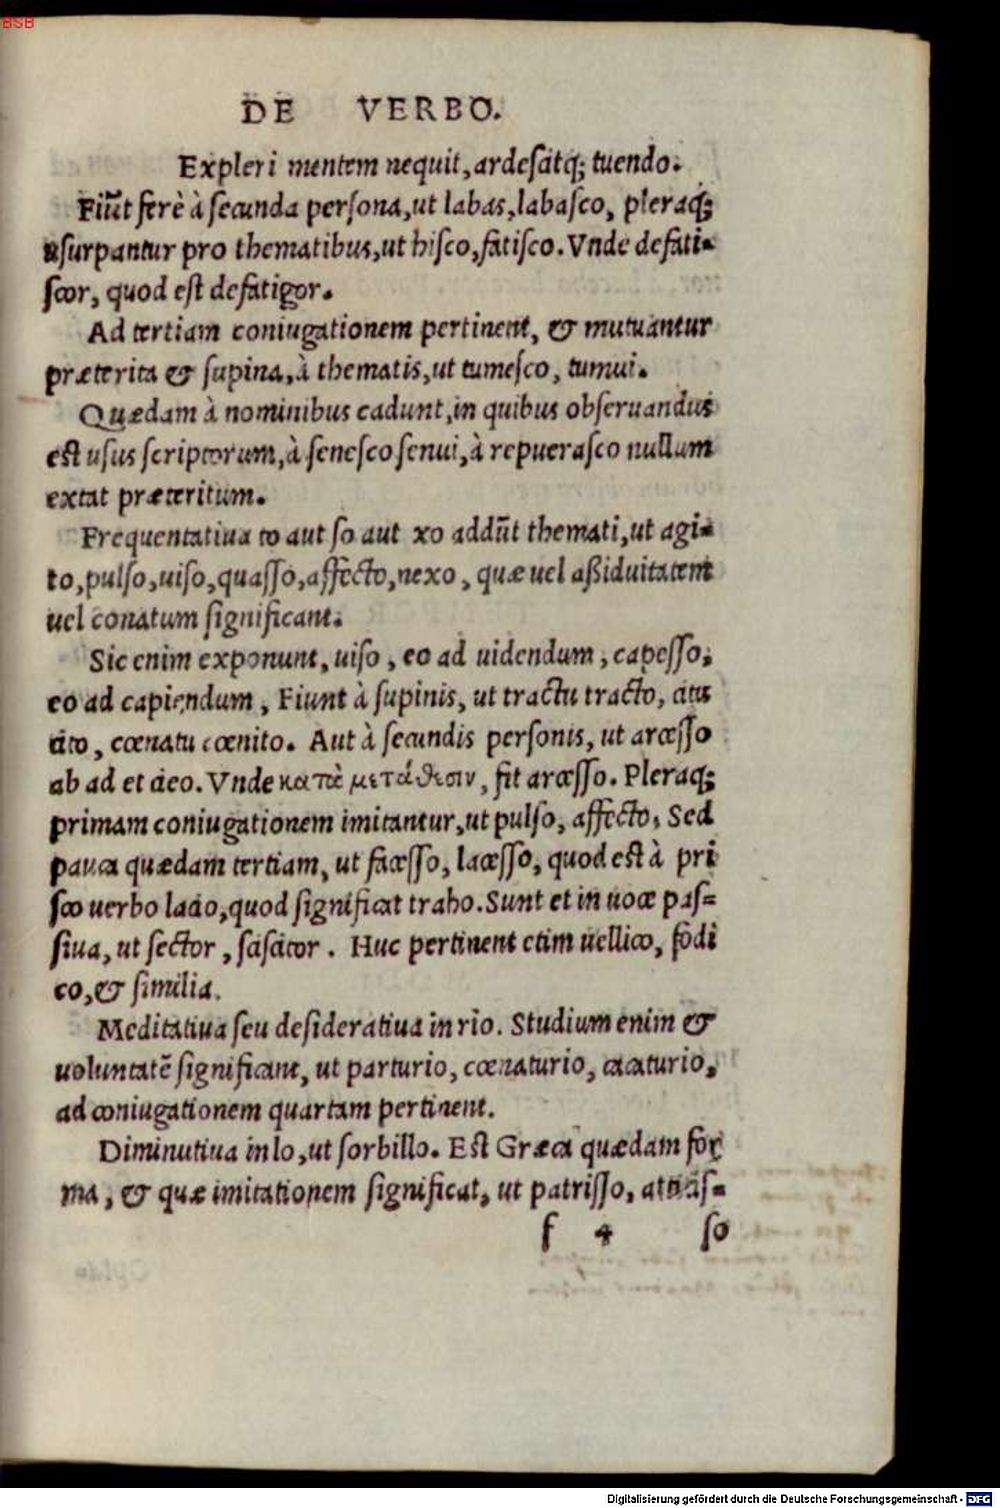 BSB
DE VERBO.
Expleri mentem nequit, ardescitq; tuendo.
Fiūt ferè à secunda persona, ut labas, labasco, pleraq;
usurpantur pro thematibus, ut hisco, fatisco. Vnde defati-
scor, quod est defatigor.
Ad tertiam coniugationem pertinent, & mutuantur
præterita & supina, à thematis, ut tumesco, tumui.
Quædam à nominibus cadunt, in quibus obseruandus
est usus scriptorum, à senesco senui, à repuerasco nullum
extat præteritum.
Frequentatiua to aut so aut xo addūt themati, ut agi-
to, pulso, uiso, quasso, affecto, nexo, quæ uel aßiduitatem
uel conatum significant.
Sic enim exponunt, uiso, eo ad uidendum, capesso,
eo ad capiendum, Fiunt à supinis, ut tractu tracto, citu
cito, cœnatu cœnito. Aut à secundis personis, ut arcesso
ab ad et cieo. Vnde κατὰ μετάθεσιν, fit arcesso. Pleraq;
primam coniugationem imitantur, ut pulso, affecto, Sed
pauca quædam tertiam, ut facesso, lacesso, quod est à pri
sco uerbo lacio, quod significat traho. Sunt et in uoce pas-
siua, ut sector, sciscitor. Huc pertinent etiam uellico, fodi
co, & similia.
Meditatiua seu desideratiua in rio. Studium enim &
uoluntatē significant, ut parturio, cœnaturio, cacaturio,
ad coniugationem quartam pertinent.
Diminutiua in lo, ut sorbillo. Est Græca quædam for
ma, & quæ imitationem significat, ut patrisso, atticis-
f 4 so
Digitalisierung gefördert durch die Deutsche Forschungsgemeinschaft - DFG